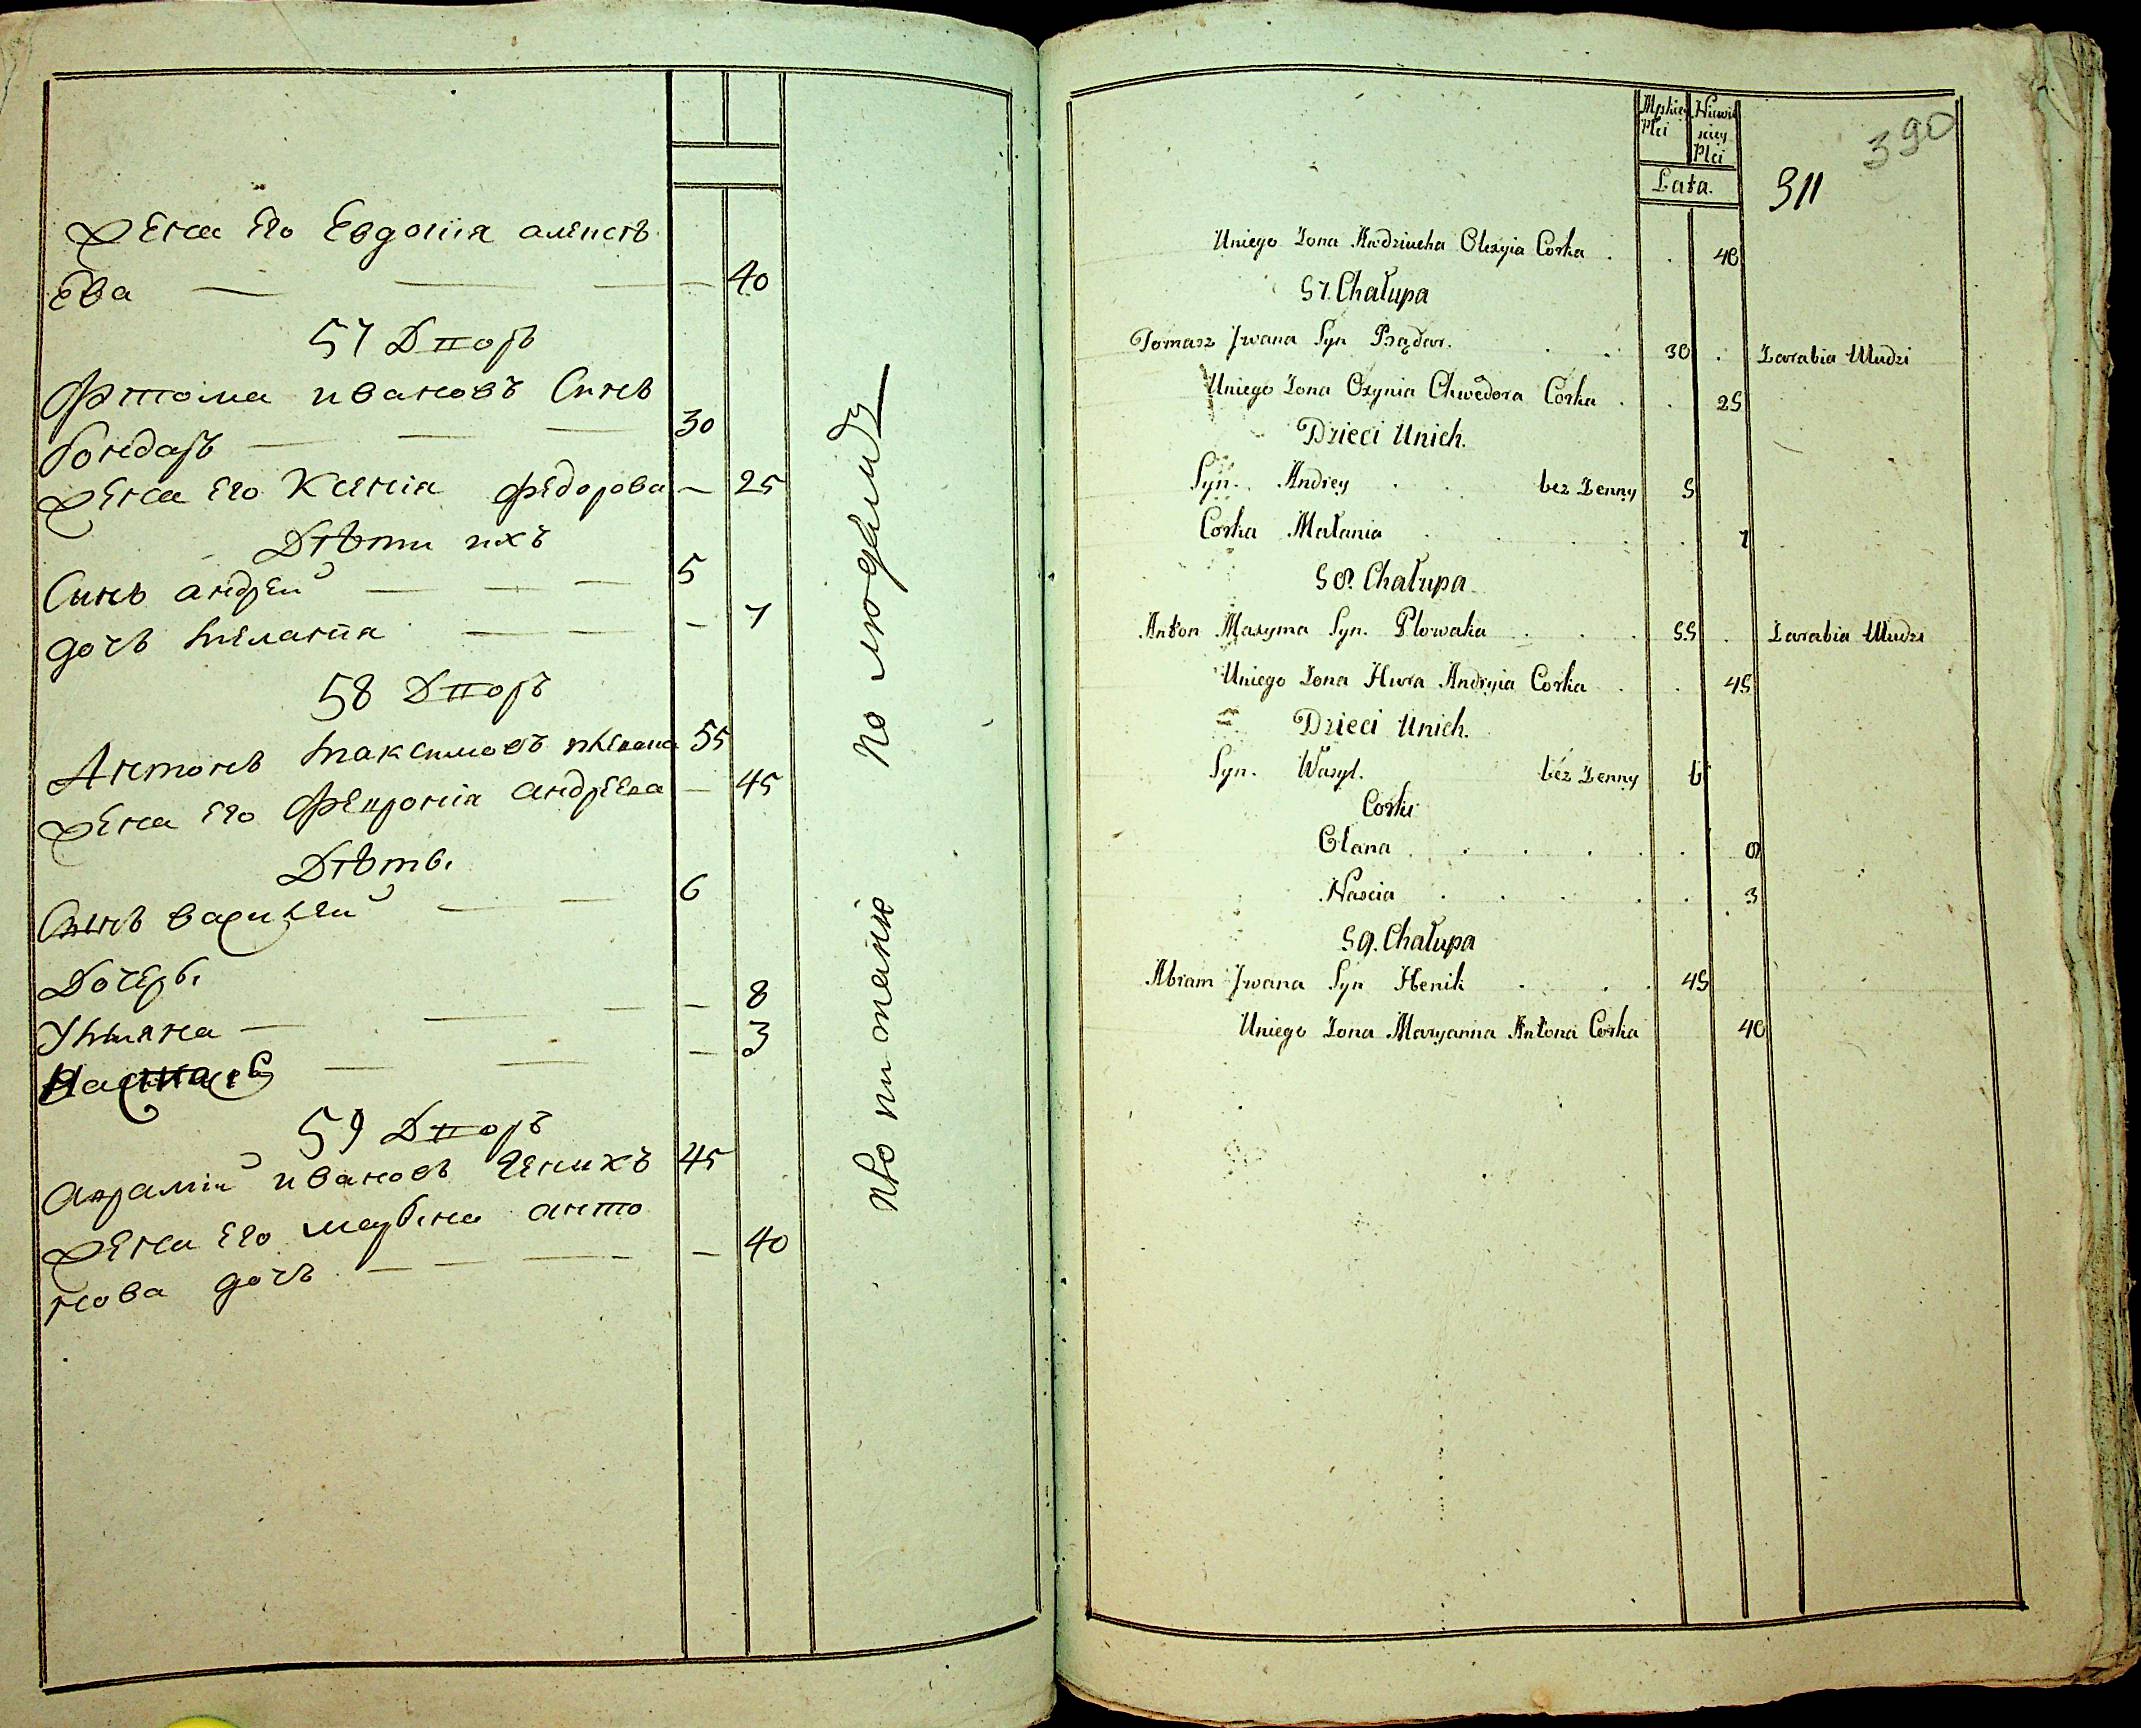 Жена Его Евдокия алексѣ
Ева 40
57 Дворъ
Фтома ивановъ Синъ
бондаръ 30
Жена Его Ксения федорова 25
Дѣти ихъ
Синъ андрей 5
дочъ Мелания 7
58 Дворъ
Антонъ Максимовъ 55
Жена Его Феврония андрѣева 45
Дѣти
Синъ василий 6
Дочери
Ульяна 8
3
59 Дворъ
аврамий ивановъ Геникъ 45
Жена Его марьяна анто
нова дочъ 40
390
311
Męskiey Płci
Niewie
sciey
Płci
Lata.
Uniego Zona Audziucha Olexyia Corka 40
57. Chałupa
Tomasz Jwana Syn Bądar. 30 Zarabia Uludzi
Uniego Zona Oxynia Chwedora Corka 25
Dzieci Unich.
Syn. Andrey bez Zenny 5
Corka Małania 7
58. Chałupa
Anton Maxyma Syn. Plowaka 55 Zarabia Uludzi
Uniego Zona Hwra Andryia Corka 45
Dzieci Unich.
Syn. Wasyl. bez Zenny 6
Corki
Elana 8
Nascia 3
59. Chałupa
Abram Jwana Syn Henik 45
Uniego Zona Maryanna Antona Corka 40